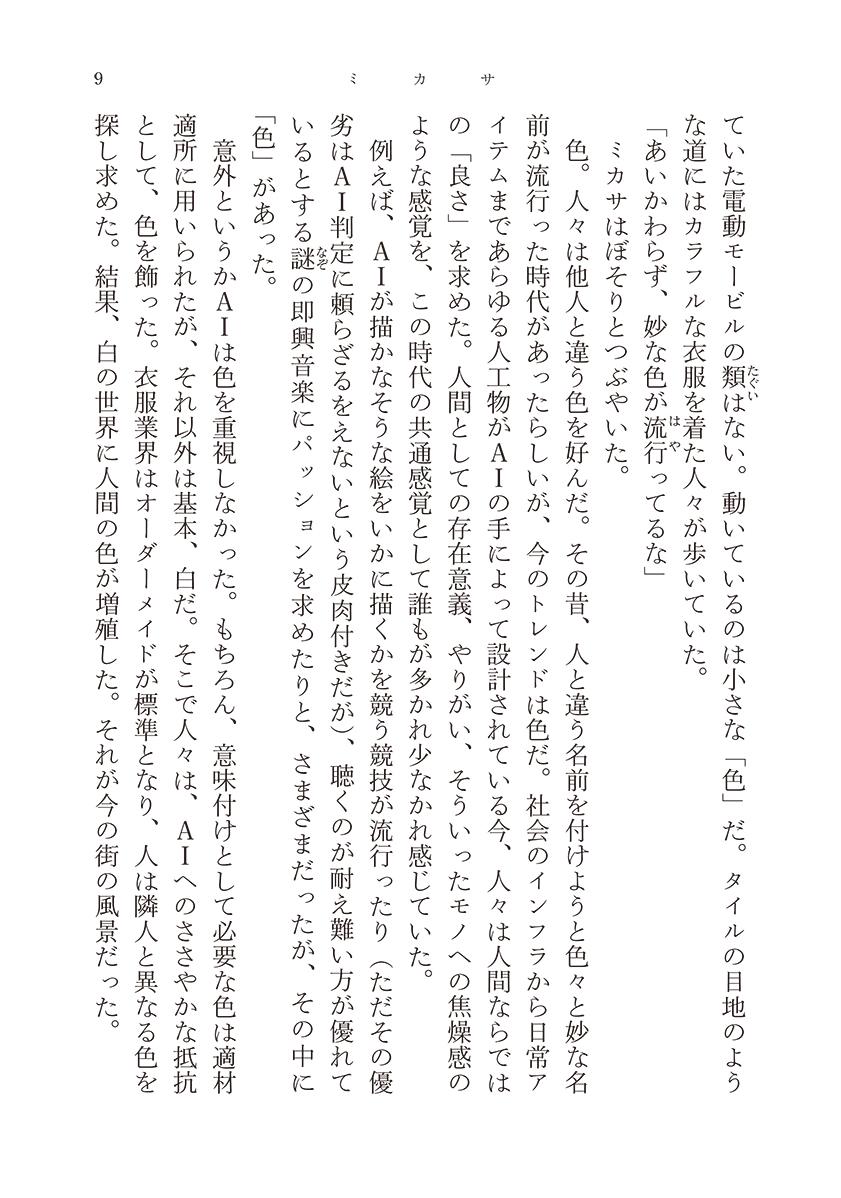 9
ミカサ
ていた電動モービルの類はない。動いているのは小さな「色」だ。タイルの目地のよう
たぐい
な道にはカラフルな衣服を着た人々が歩いていた。
「あいかわらず、妙な色が流行ってるな」
はや
ミカサはぼそりとつぶやいた。
色。人々は他人と違う色を好んだ。その昔、人と違う名前を付けようと色々と妙な名
前が流行った時代があったらしいが、今のトレンドは色だ。社会のインフラから日常ア
イテムまであらゆる人工物がAIの手によって設計されている今、人々は人間ならでは
の「良さ」を求めた。人間としての存在意義、やりがい、そういったモノへの焦燥感の
ような感覚を、この時代の共通感覚として誰もが多かれ少なかれ感じていた。
例えば、AIが描かなそうな絵をいかに描くかを競う競技が流行ったり（ただその優
劣はAI判定に頼らざるをえないという皮肉付きだが）、聴くのが耐え難い方が優れて
いるとする謎の即興音楽にパッションを求めたりと、さまざまだったが、その中に
なぞ
「色」があった。
意外というかAIは色を重視しなかった。もちろん、意味付けとして必要な色は適材
適所に用いられたが、それ以外は基本、白だ。そこで人々は、AIへのささやかな抵抗
として、色を飾った。衣服業界はオーダーメイドが標準となり、人は隣人と異なる色を
探し求めた。結果、白の世界に人間の色が増殖した。それが今の街の風景だった。